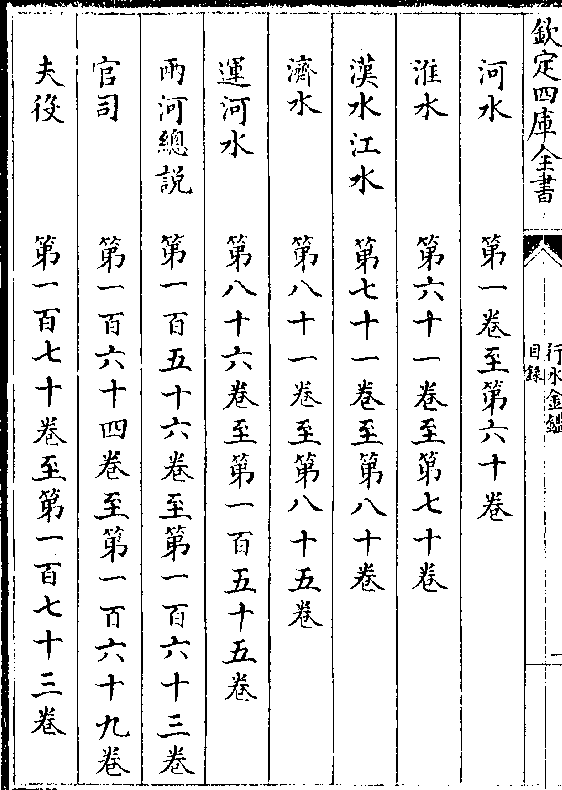 欽定四庫全書
行水金鑑
目錄
一
河水 第一卷至第六十卷
淮水 第六十一卷至第七十卷
漢水江水 第七十一卷至第八十卷
濟水 第八十一卷至第八十五卷
運河水 第八十六卷至第一百五十五卷
兩河總説 第一百五十六卷至第一百六十三卷
官司 第一百六十四卷至第一百六十九卷
夫役 第一百七十卷至第一百七十三卷